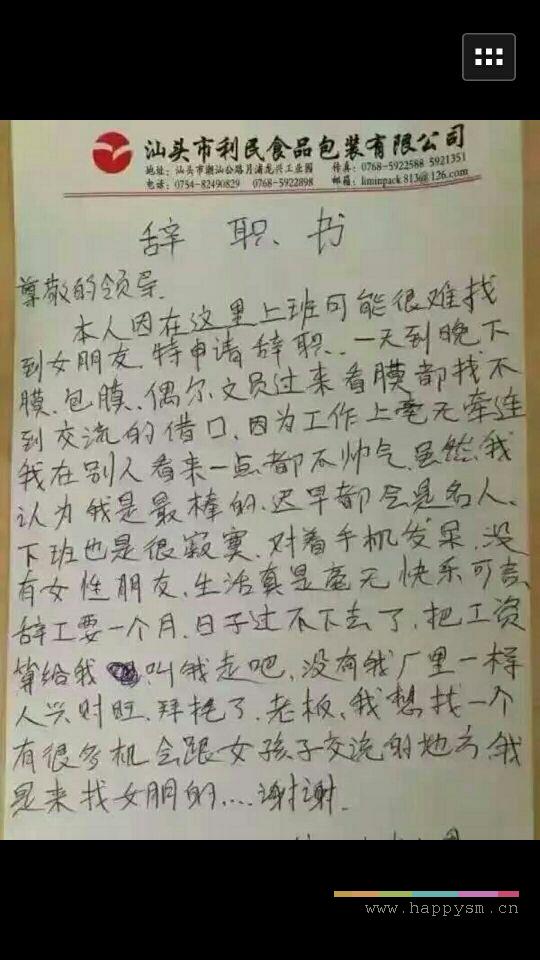 汕头市利民食品包装有限公司
地址：汕头市潮汕公路月浦龙兴工业园 传真：0768-5922588 5921351
电话：0754-82490829 0768-5922898 邮箱：liminpack813@126.com
辞职书
尊敬的领导.
本人因在这里上班可能很难找
到女朋友.特申请辞职..一天到晚下
膜.包膜.偶尔文员过来看膜都找不
到交流的借口.因为工作上毫无牵连
我在别人看来一点都不帅气.虽然我
认为我是最棒的.迟早都会是名人.
下班也是很寂寞.对着手机发呆.没
有女性朋友.生活真是毫无快乐可言
辞工要一个月.日子过不下去了.把工资
算给我 叫我走吧.没有我厂里一样
人兴财旺.拜托了.老板.我想找一个
有很多机会跟女孩子交流的地方.我
是来找女朋的....谢谢.
www.happysm.cn